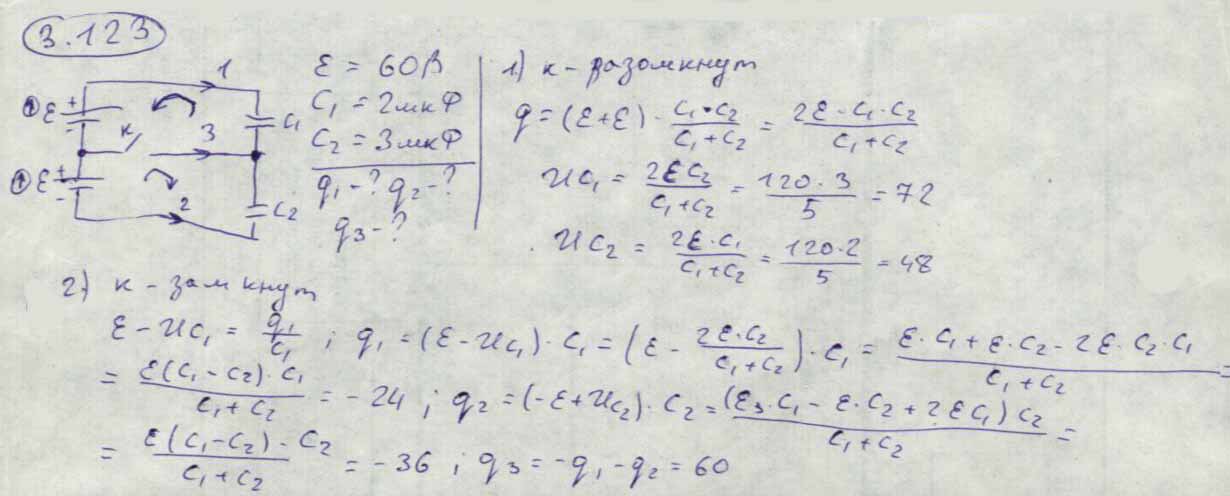 3.123
1
ε + -
к
3
C₁
ε + -
2
C₂
ε = 60В
C₁ = 2мкФ
C₂ = 3мкФ
q₁-? q₂-?
q₃-?
1) к-разомкнут
q = (ε+ε) · C₁·C₂/(C₁+C₂) = 2ε·C₁·C₂/(C₁+C₂)
UC₁ = 2εC₂/(C₁+C₂) = 120·3/5 = 72
UC₂ = 2ε·C₁/(C₁+C₂) = 120·2/5 = 48
2) к-замкнут
ε - UC₁ = q₁/C₁ ; q₁ = (ε - UC₁)·C₁ = (ε - 2ε·C₂/(C₁+C₂))·C₁ = (ε·C₁+ε·C₂-2ε·C₂·C₁)/(C₁+C₂) =
= ε(C₁-C₂)·C₁/(C₁+C₂) = -24 ; q₂ = (-ε+UC₂)·C₂ = (ε₃·C₁-ε·C₂+2εC₁)C₂/(C₁+C₂) =
= ε(C₁-C₂)·C₂/(C₁+C₂) = -36 ; q₃ = -q₁-q₂ = 60